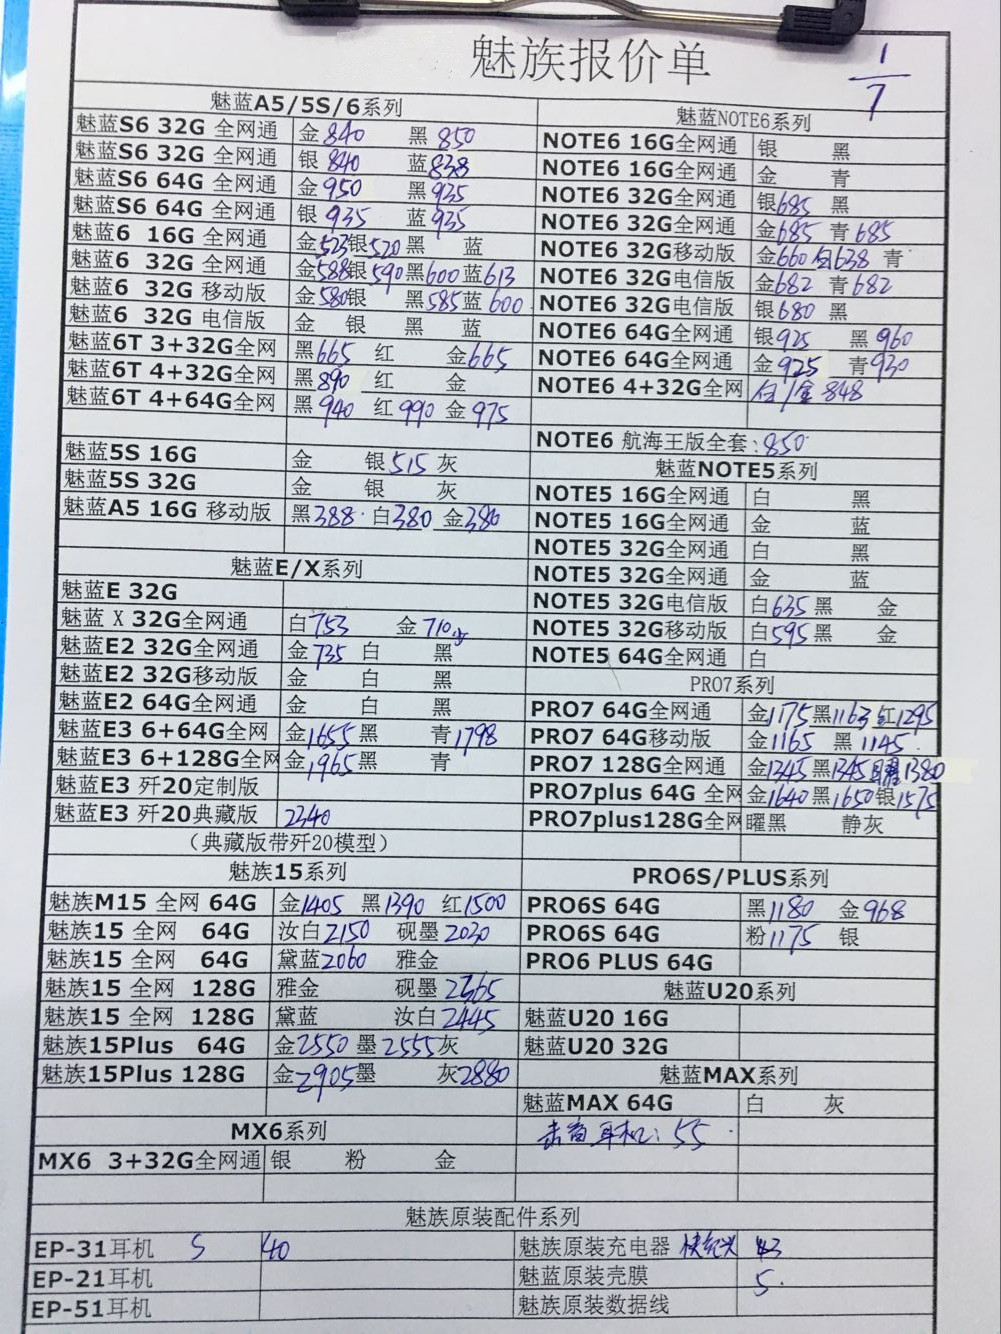 魅族报价单
1/7
魅蓝A5/5S/6系列
魅蓝S6 32G 全网通 金840 黑850
魅蓝S6 32G 全网通 银840 蓝838
魅蓝S6 64G 全网通 金950 黑935
魅蓝S6 64G 全网通 银935 蓝935
魅蓝6 16G 全网通 金523银520黑 蓝
魅蓝6 32G 全网通 金588银590黑600蓝613
魅蓝6 32G 移动版 金580银 黑585蓝600
魅蓝6 32G 电信版 金 银 黑 蓝
魅蓝6T 3+32G全网 黑665 红 金665
魅蓝6T 4+32G全网 黑890 红 金
魅蓝6T 4+64G全网 黑940 红990 金975
魅蓝5S 16G 金 银515灰
魅蓝5S 32G 金 银 灰
魅蓝A5 16G 移动版 黑388 白380 金380
魅蓝E/X系列
魅蓝E 32G
魅蓝 X 32G全网通 白753 金710
魅蓝E2 32G全网通 金735 白 黑
魅蓝E2 32G移动版 金 白 黑
魅蓝E2 64G全网通 金 白 黑
魅蓝E3 6+64G全网 金1655黑 青1798
魅蓝E3 6+128G全网 金1965黑 青
魅蓝E3 歼20定制版
魅蓝E3 歼20典藏版 2340
(典藏版带歼20模型)
魅族15系列
魅族M15 全网 64G 金1405 黑1390 红1500
魅族15 全网 64G 汝白2150 砚墨2030
魅族15 全网 64G 黛蓝2060 雅金
魅族15 全网 128G 雅金 砚墨2365
魅族15 全网 128G 黛蓝 汝白2445
魅族15Plus 64G 金2550 墨2555灰
魅族15Plus 128G 金2905墨 灰2880
MX6系列
MX6 3+32G全网通 银 粉 金
魅蓝NOTE6系列
NOTE6 16G全网通 银 黑
NOTE6 16G全网通 金 青
NOTE6 32G全网通 银685 黑
NOTE6 32G全网通 金685 青685
NOTE6 32G移动版 金660 银638 青
NOTE6 32G电信版 金682 青682
NOTE6 32G电信版 银680 黑
NOTE6 64G全网通 银925 黑960
NOTE6 64G全网通 金925 青930
NOTE6 4+32G全网 白/金 848
NOTE6 航海王版全套:850
魅蓝NOTE5系列
NOTE5 16G全网通 白 黑
NOTE5 16G全网通 金 蓝
NOTE5 32G全网通 白 黑
NOTE5 32G全网通 金 蓝
NOTE5 32G电信版 白635黑 金
NOTE5 32G移动版 白595黑 金
NOTE5 64G全网通 白
PRO7系列
PRO7 64G全网通 金1175黑1163红1295
PRO7 64G移动版 金1165 黑1145
PRO7 128G全网通 金1345黑1345曜1380
PRO7plus 64G 全网 金1640黑1650银1575
PRO7plus128G全网 曜黑 静灰
PRO6S/PLUS系列
PRO6S 64G 黑1180 金968
PRO6S 64G 粉1175 银
PRO6 PLUS 64G
魅蓝U20系列
魅蓝U20 16G
魅蓝U20 32G
魅蓝MAX系列
魅蓝MAX 64G 白 灰
耳机: 55
魅族原装配件系列
EP-31耳机 S 40 魅族原装充电器 43
EP-21耳机 魅蓝原装壳膜 5
EP-51耳机 魅族原装数据线